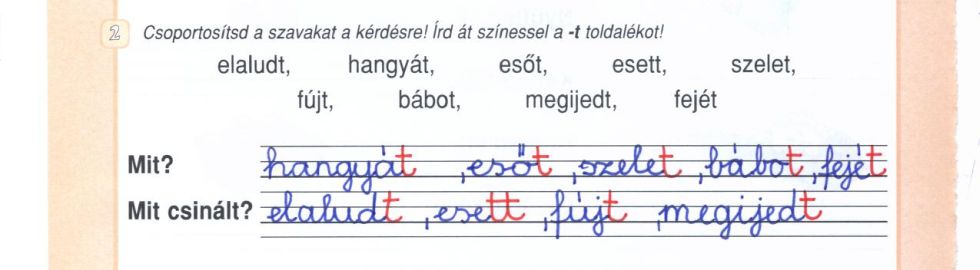 2 Csoportosítsd a szavakat a kérdésre! Írd át színessel a -t toldalékot!
elaludt, hangyát, esőt, esett, szelet,
fújt, bábot, megijedt, fejét
Mit? hangyát, esőt, szelet, bábot, fejét
Mit csinált? elaludt, esett, fújt, megijedt